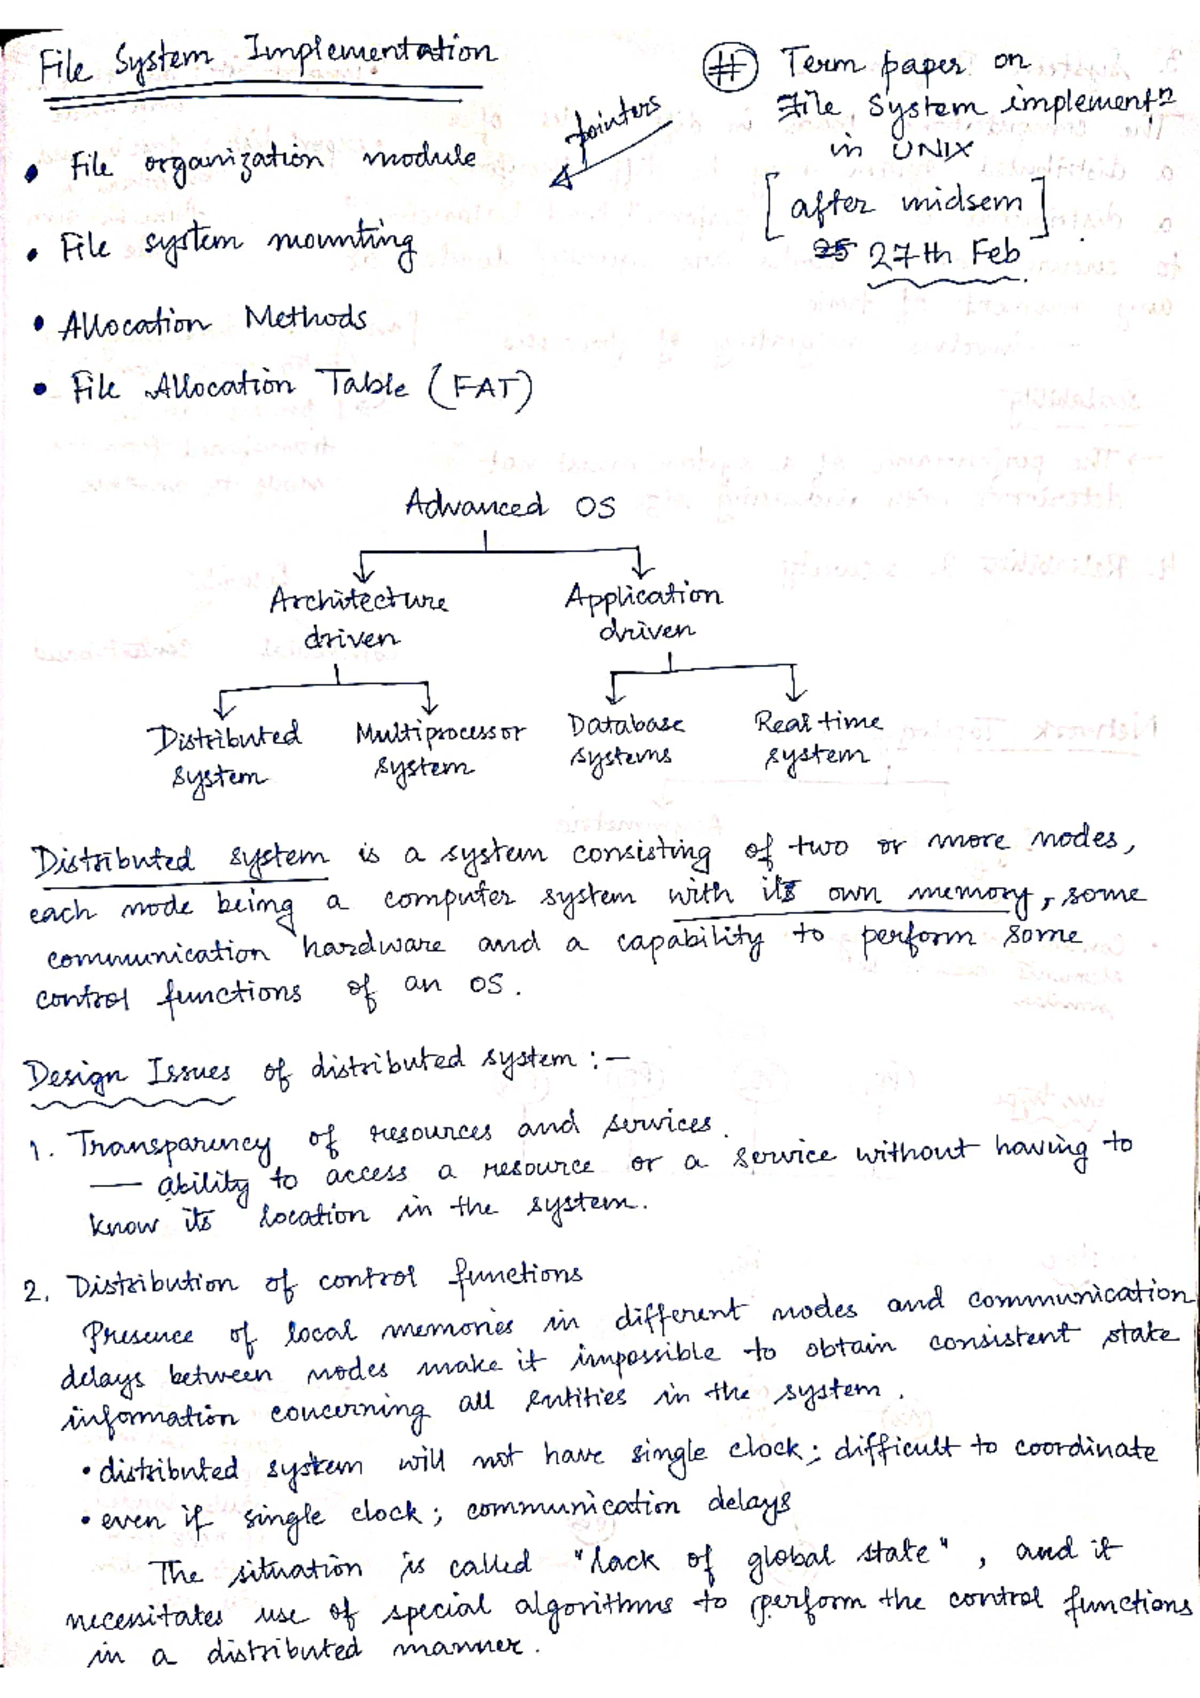 File System Implementation
• File organization module
• File system mounting
• Allocation Methods
• File Allocation Table (FAT)
pointers
# Term paper on
File System implementn
in UNIX
[after midsem]
25 27th Feb.
Advanced OS
Architecture driven
Application driven
Distributed system
Multiprocessor system
Database systems
Real time system
Distributed system is a system consisting of two or more nodes,
each node being a computer system with its own memory, some
communication hardware and a capability to perform some
control functions of an OS.
Design Issues of distributed system :-
1. Transparency of resources and services.
— ability to access a resource or a service without having to
know its location in the system.
2. Distribution of control functions
Presence of local memories in different nodes and communication
delays between nodes make it impossible to obtain consistent state
information concerning all entities in the system.
• distributed system will not have single clock; difficult to coordinate
• even if single clock; communication delays
The situation is called "lack of global state", and it
necessitates use of special algorithms to perform the control functions
in a distributed manner.